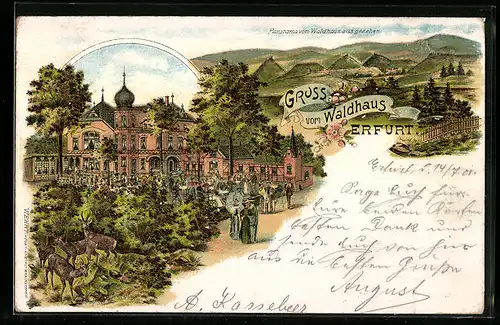 Panorama vom Waldhaus aus gesehen.
GRUSS
vom Waldhaus
ERFURT.
Erfurt, d. 14/7. 01.
Sage Euch für
Eure beiden Karten
besten Dank und
sende Euch von hier
aus die besten Grüße
August
A. Kasseber